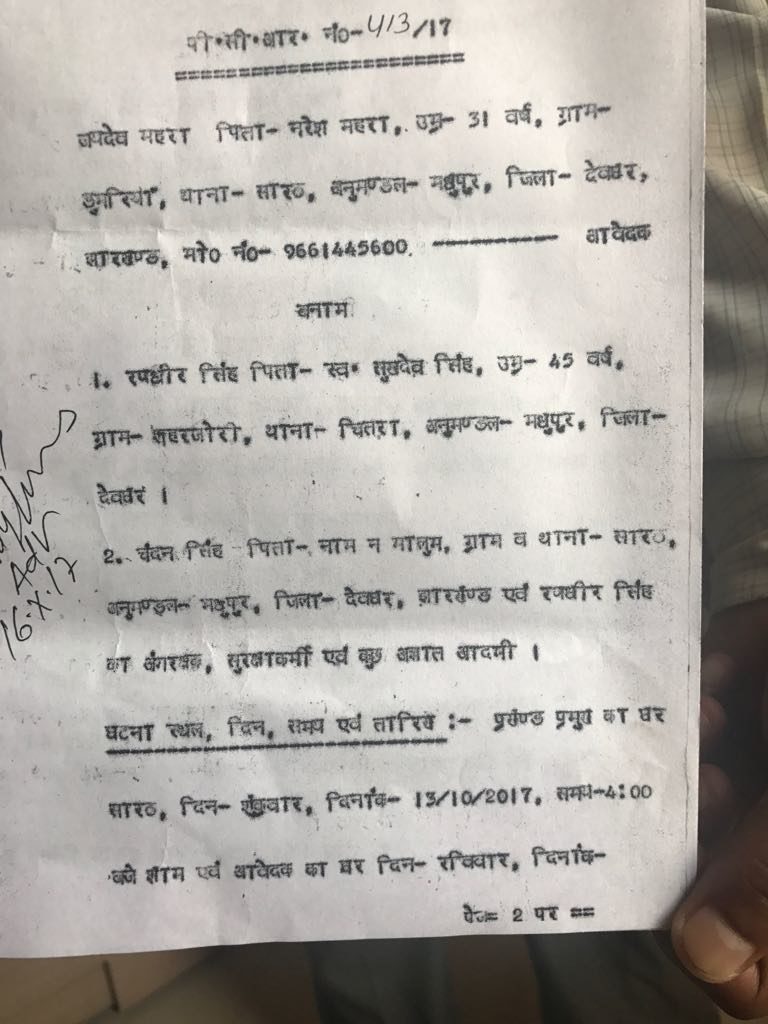 पी·सी·आर· नं०- 413/17
जयदेव महरा पिता- नरेश महरा, उम्र- 31 वर्ष, ग्राम-
डुमरिया, थाना- सारठ, अनुमण्डल- मधुपुर, जिला- देवघर,
झारखण्ड, मो० नं०- 9661445600. ---------- आवेदक
बनाम
1. रणधीर सिंह पिता- स्व· सुखदेव सिंह, उम्र- 45 वर्ष,
ग्राम- लहरजोरी, थाना- चितरा, अनुमण्डल- मधुपुर, जिला-
देवघर ।
2. चंदन सिंह पिता- नाम न मालुम, ग्राम व थाना- सारठ,
अनुमण्डल- मधुपुर, जिला- देवघर, झारखण्ड एवं रणधीर सिंह
का अंगरक्षक, सुरक्षाकर्मी एवं कुछ अज्ञात आदमी ।
घटना स्थल, दिन, समय एवं तारिख :- प्रखण्ड प्रमुख का घर
सारठ, दिन- शुक्रवार, दिनांक- 13/10/2017, समय-4:00
बजे शाम एवं आवेदक का घर दिन- रविवार, दिनांक-
पेज= 2 पर ==
Adv
16.X.17